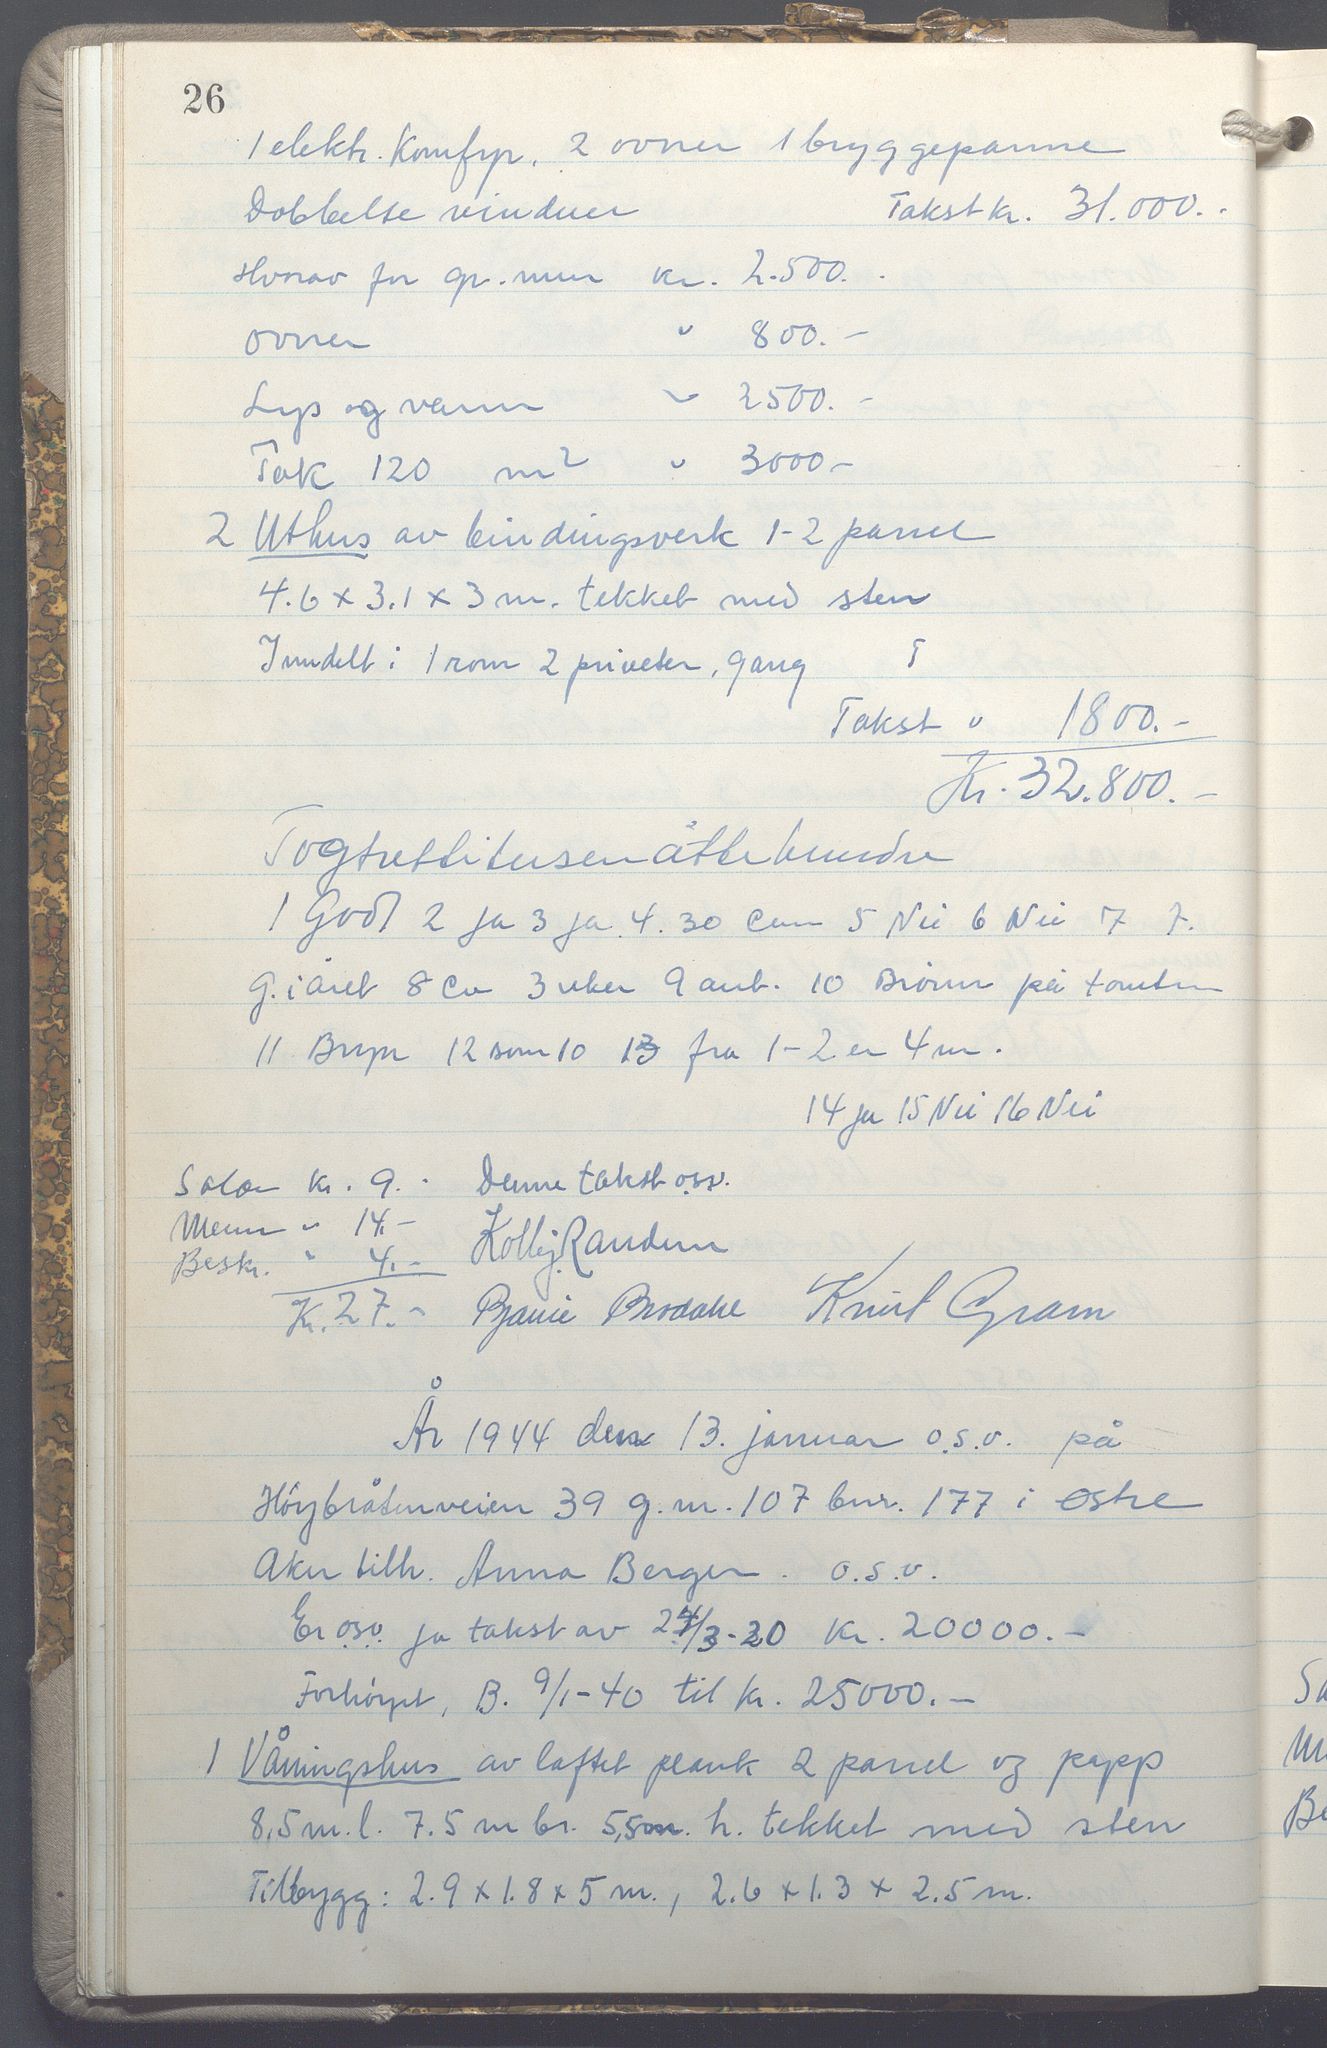 26
1 elektr. Komfyr. 2 ovner 1 bryggepanne
Dobbelte vinduer Takst kr. 31.000.-
Hvorav for gr.mur kr. 2.500.-
ovner " 800.-
Lys og vann " 2500.-
Tak 120 m2 " 3000-
2 Uthus av bindingsverk 1-2 panel
4.6 x 3.1 x 3 m. tekket med sten
Inndelt i 1 rom 2 priveter, gang T
Takst " 1800.-
Kr. 32.800.-
Togtrettitusenåttehundre
1 God 2 ja 3 ja 4. 30 cm 5 Nei 6 Nei 7 7.
g. i året 8 Ca 3 uker 9 ant. 10 Brönn på tomten
11 Bryn 12 som 10 13 fra 1-2 er 4 m.
14 ja 15 Nei 16 Nei
Salær kr. 9.- Denne takst osv.
Menn " 14.- Randem
Beskr. " 4.-
Kr. 27.- Bjarne Brodahl Knut Gram
År 1944 den 13. januar o.s.v. på
Höybråtenveien 39 g.nr. 107 bnr. 177 i Östre
Aker tilh. Anna Berger. o.s.v.
Er osv ja takst av 24/3-20 Kr. 20000.-
Forhöyet, B. 9/1-40 til kr. 25000.-
1 Våningshus av laftet plank 2 panel og papp
8,5 m. l. 7.5 m br. 5,5m. h. tekket med sten
Tilbygg: 2.9 x 1.8 x 5 m., 2.6 x 1.3 x 2.5 m.